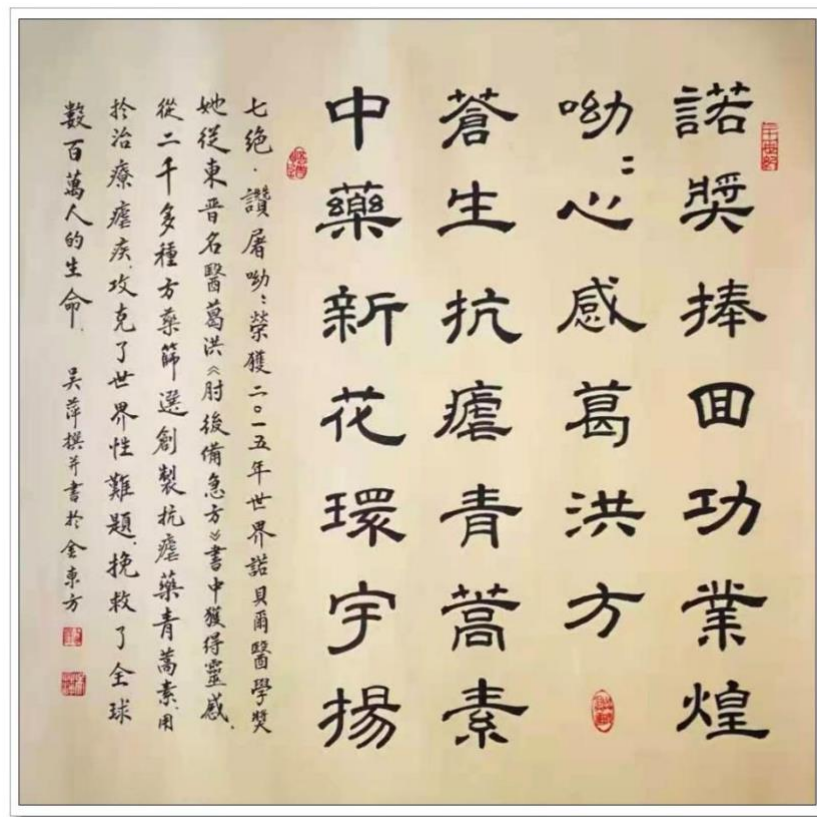 諾奬捧回功業煌
呦:心感葛洪方
蒼生抗瘧青蒿素
中藥新花環宇揚
七绝·讚屠呦:榮獲二〇一五年世界諾貝爾醫學奬
她從東晋名醫葛洪《肘後備急方》書中獲得靈感.
從二千多種方藥篩選創製抗瘧藥青蒿素.用
於治療瘧疾.攻克了世界性難題.挽救了全球
数百萬人的生命. 吴萍撰并書於金東方